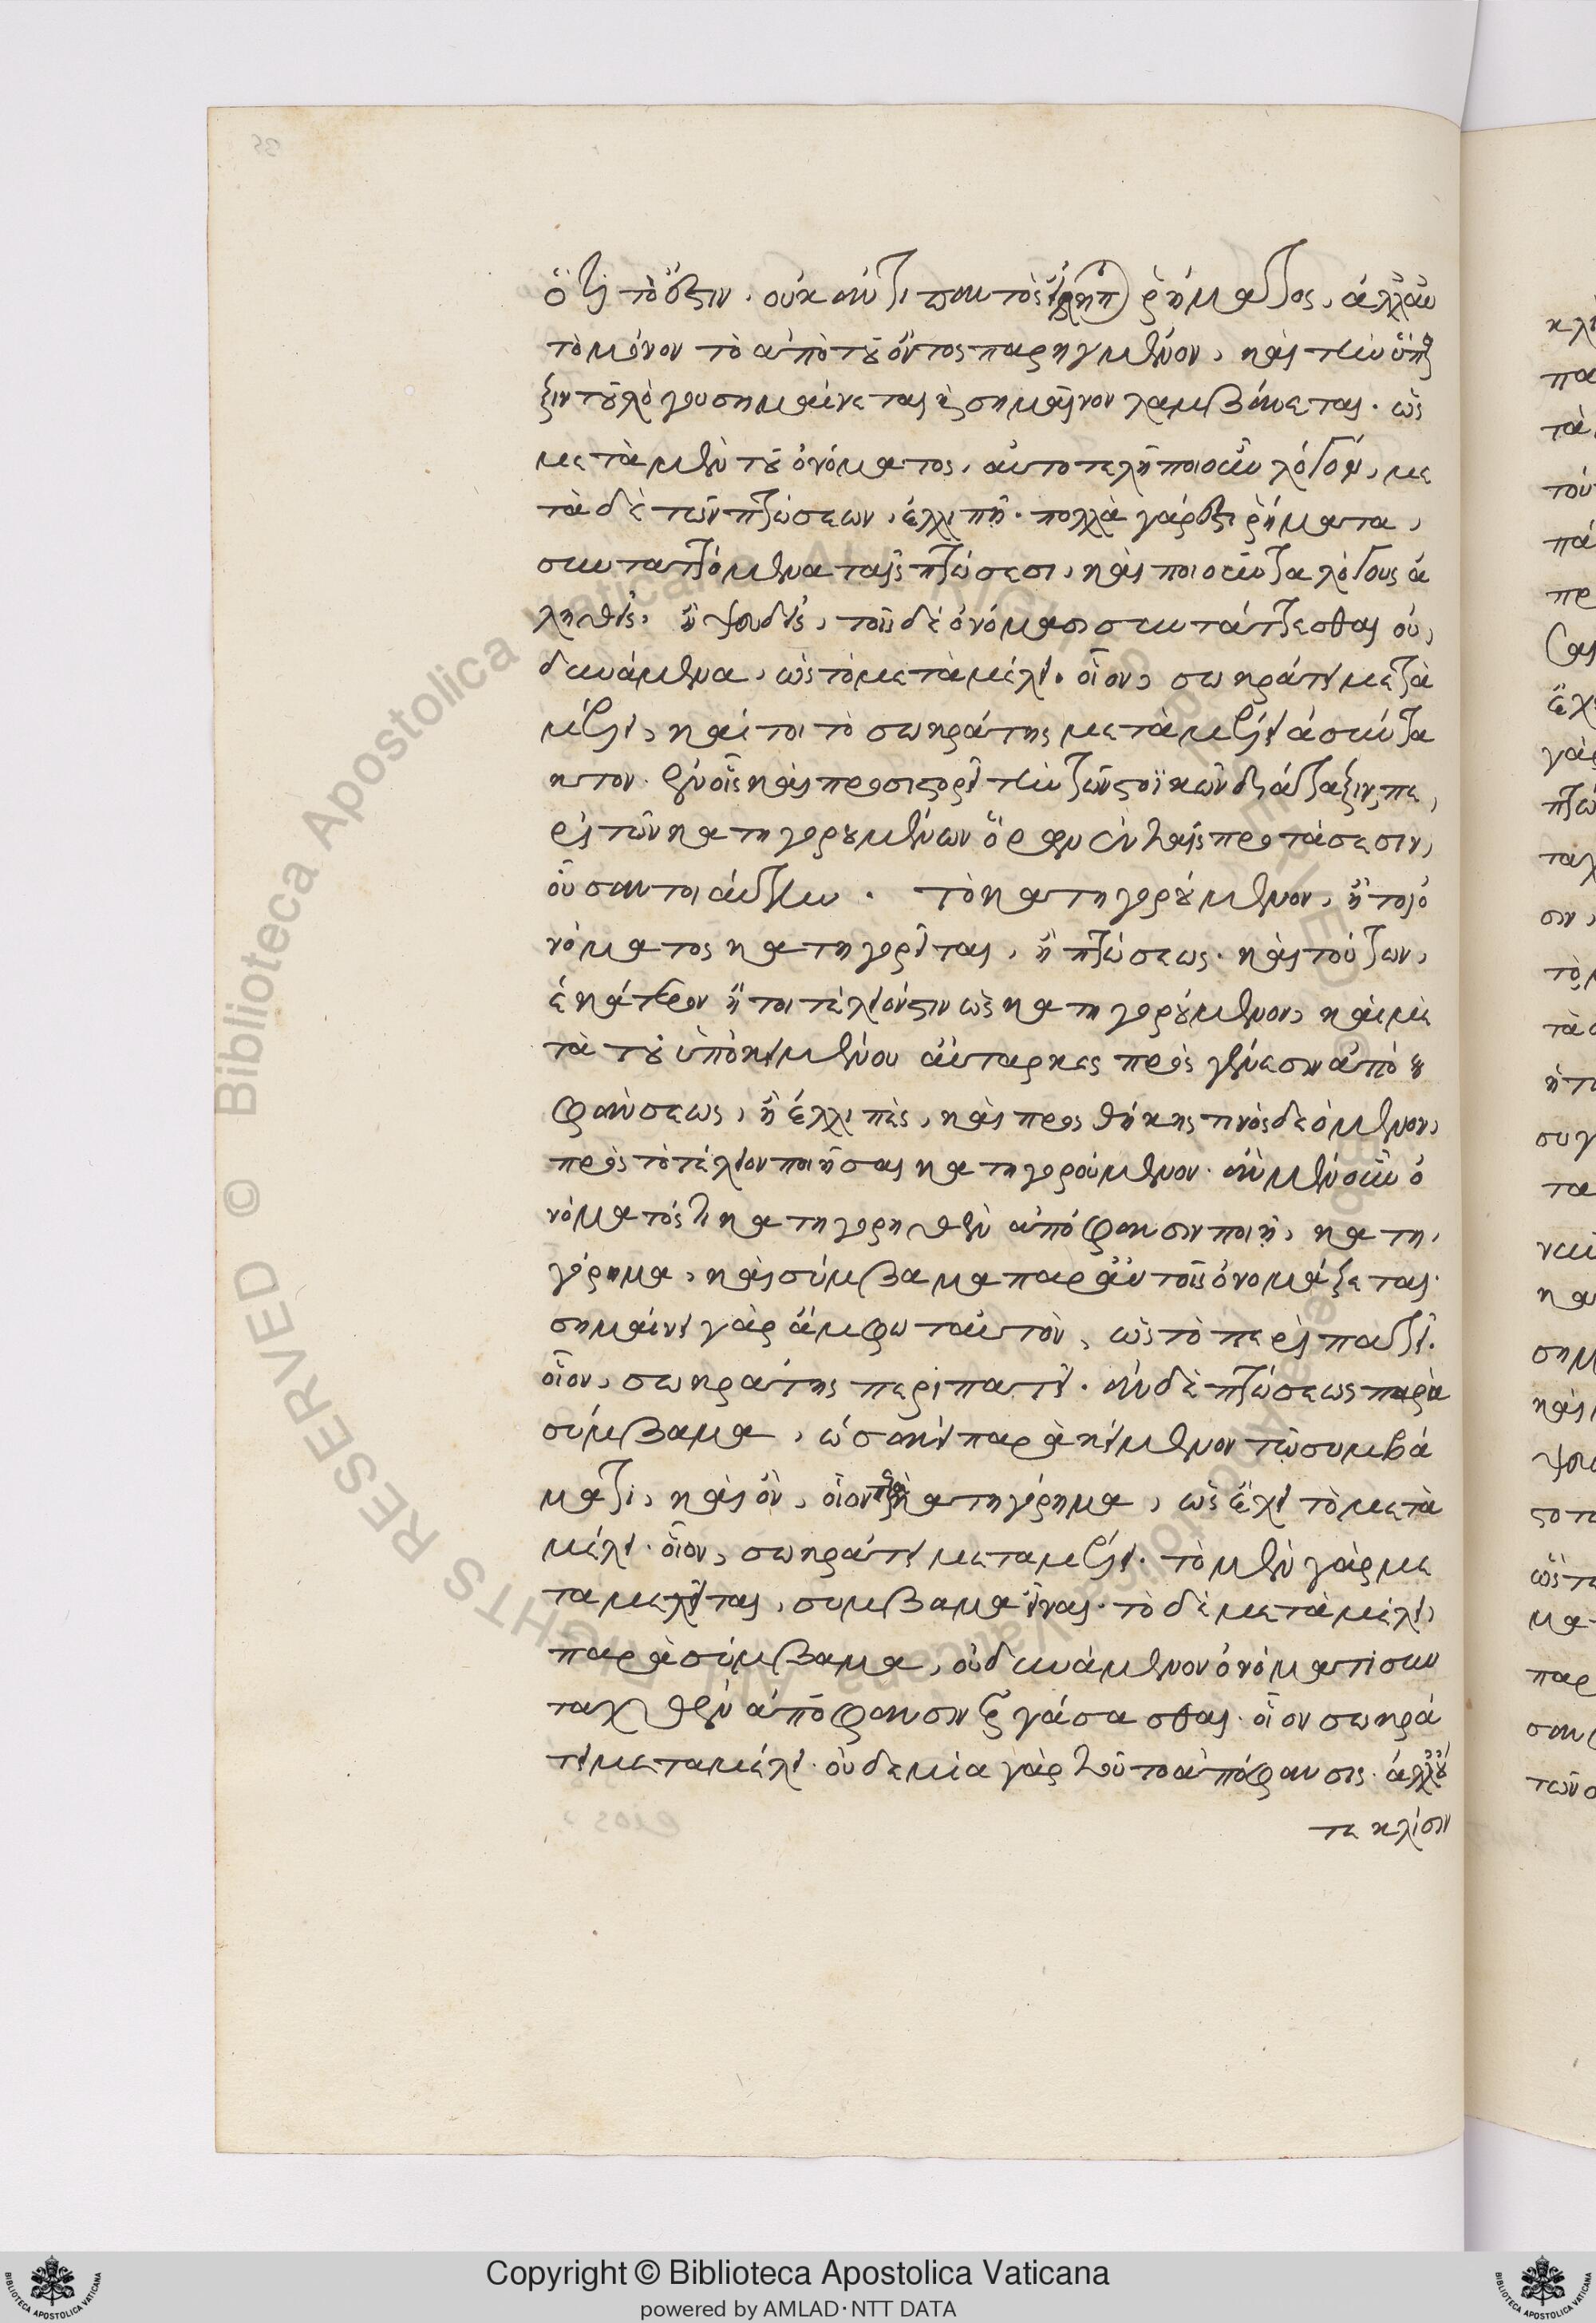 ὅτι τὸ ἔστιν. οὐκ ἀντὶ παντὸς ῥήματος, ἀλλ' αὐ
τὸ μόνον τὸ ἀπὸ τοῦ ὄντος παρηγμένον, καὶ τὴν ὕπαρ
ξιν τοῦ λόγου σημαίνεται
μετὰ μὲν τοῦ ὀνόματος, αὐτοτελῆ ποιοῦν λόγον, με
τὰ δὲ τῶν πτώσεων, ἐλλιπῆ. πολλὰ γάρ ἐστι ῥήματα,
συνταττόμενα ταῖς πτώσεσι, καὶ ποιοῦντα λόγους ἀ
ληθεῖς, ἢ ψευδεῖς, τοῖς δὲ ὀνόμασι συντάττεσθαι οὐ
δυνάμενα, ὡς τὸ μεταμέλει. οἷον, σωκράτει μετα
μέλει, καίτοι τὸ σωκράτης μεταμέλει ἀσύντα
κτον. ἐν οἷς καὶ προσιστορεῖ τὴν τῶν στοϊκῶν διάταξιν, πε
ρὶ τῶν κατηγορουμένων ὅρων ἐν ταῖς προτάσεσιν,
οὖσαν τοιαύτην. τὸ κατηγορούμενον, ἤτοι ὀ
νόματος κατηγορεῖται, ἢ πτώσεως. καὶ τούτων,
ἑκάτερον ἤτοι τέλειόν ἐστιν ὡς κατηγορούμενον, καὶ με
τὰ τοῦ ὑποκειμένου αὔταρκες πρὸς γένεσιν ἀπο
φάνσεως, ἢ ἐλλιπὲς, καὶ προσθήκης τινὸς δεόμενον,
πρὸς τὸ τέλειον ποιῆσαι κατηγορούμενον. ἂν μὲν οὖν ὀ
νόματός τι κατηγορηθὲν ἀπόφανσιν ποιῇ, κατη
γόρημα, καὶ σύμβαμα παρ' αὐτοῖς ὀνομάζεται.
σημαίνει γὰρ ἄμφω ταὐτὸν, ὡς τὸ περιπατεῖ.
οἷον, σωκράτης περιπατεῖ. ἂν δὲ πτώσεως παρα
σύμβαμα, ὡσανεὶ παρακείμενον τῷ συμβά
ματι, καὶ ὂν, οἷον παρακατηγόρημα, ὡς ἔχει τὸ μετα
μέλει. οἷον, σωκράτει μεταμέλει. τὸ μὲν γὰρ με
ταμελεῖται, συμβαμα εἶναι. τὸ δὲ μεταμέλει,
παρασύμβαμα, οὐ δυνάμενον ὀνόματι συν
ταχθὲν ἀπόφανσιν ἐργάσασθαι. οἷον σωκρά
τει μεταμέλει. οὐδεμία γὰρ τοῦτο ἀπόφανσις. ἀλλ' οὔ
τε κλίσιν